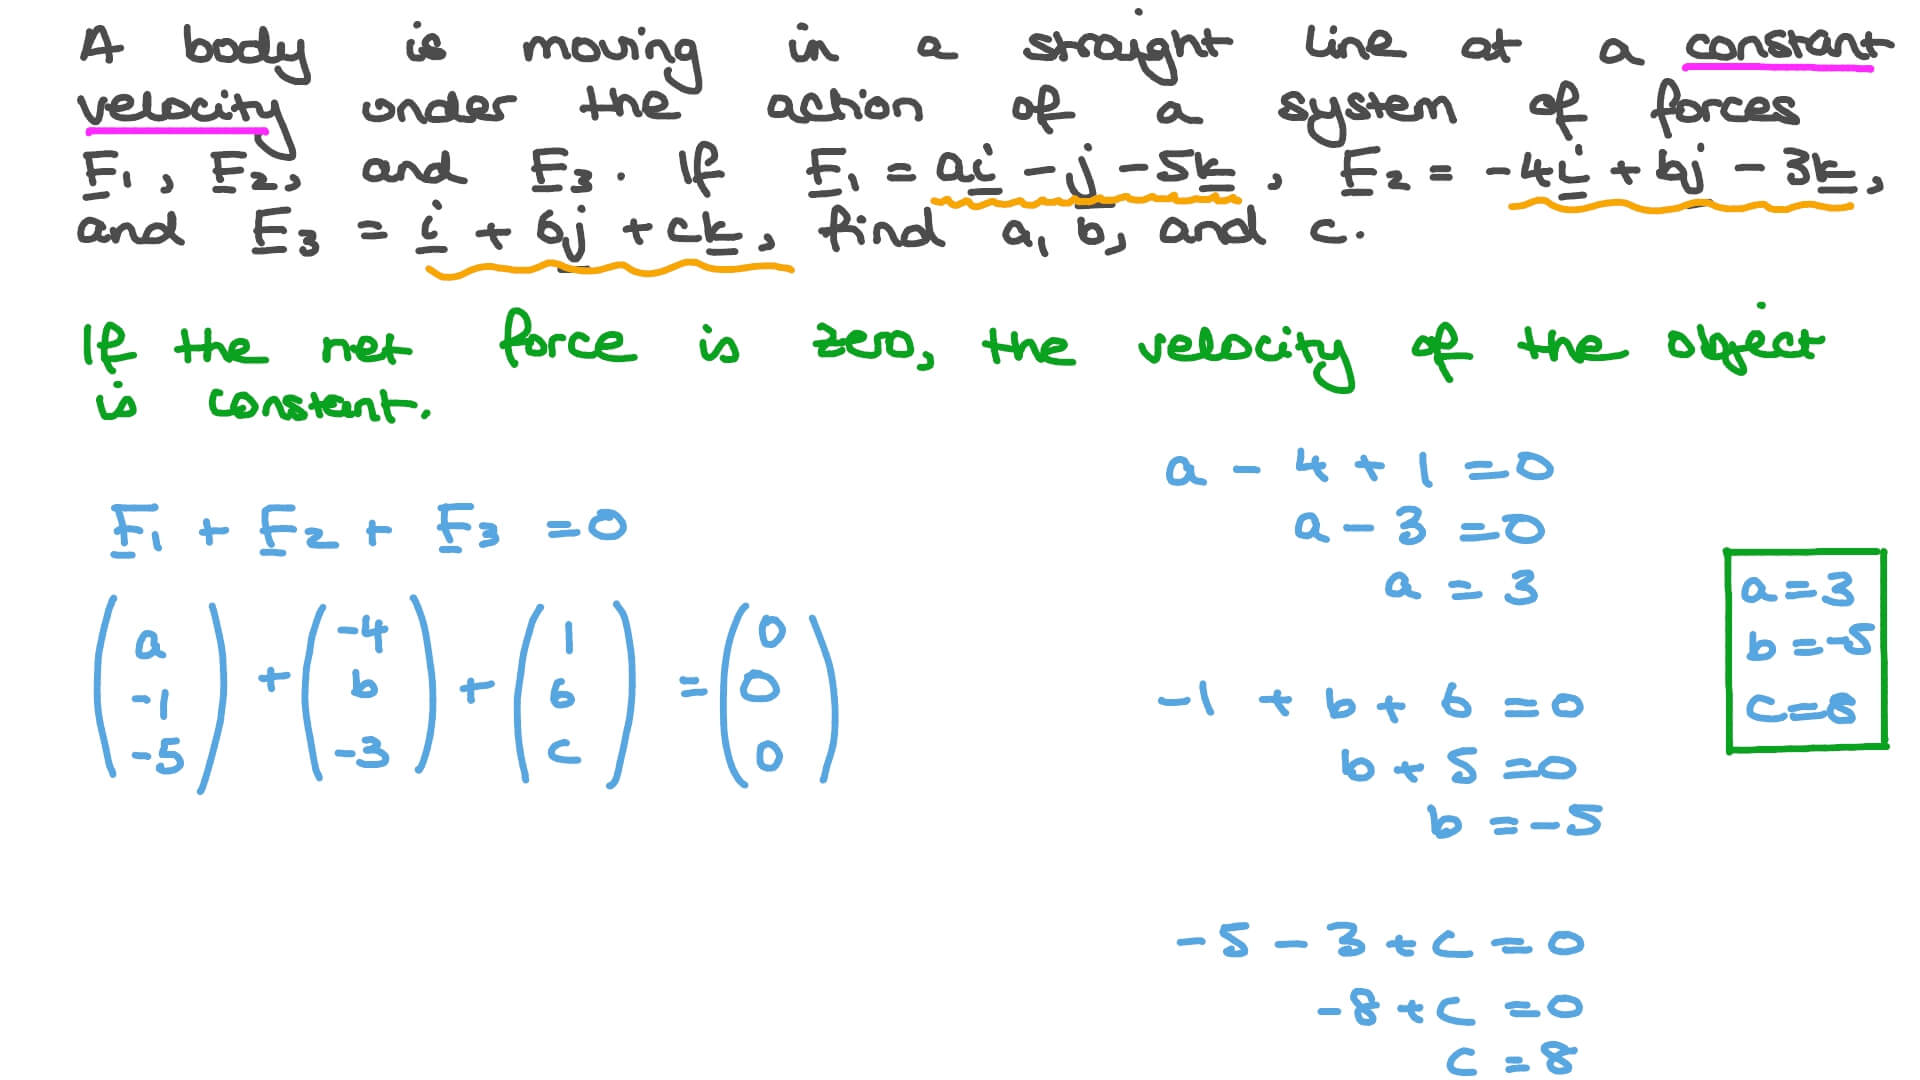 A body is moving in a straight line at a constant
velocity under the action of a system of forces
F₁, F₂, and F₃. If F₁ = ai - j - 5k, F₂ = -4i + bj - 3k,
and F₃ = i + 6j + ck, find a, b, and c.
If the net force is zero, the velocity of the object
is constant.
F₁ + F₂ + F₃ = 0
(a -1 -5) + (-4 b -3) + (1 6 c) = (0 0 0)
a - 4 + 1 = 0
a - 3 = 0
a = 3
-1 + b + 6 = 0
b + 5 = 0
b = -5
-5 - 3 + c = 0
-8 + c = 0
c = 8
a = 3
b = -5
c = 8